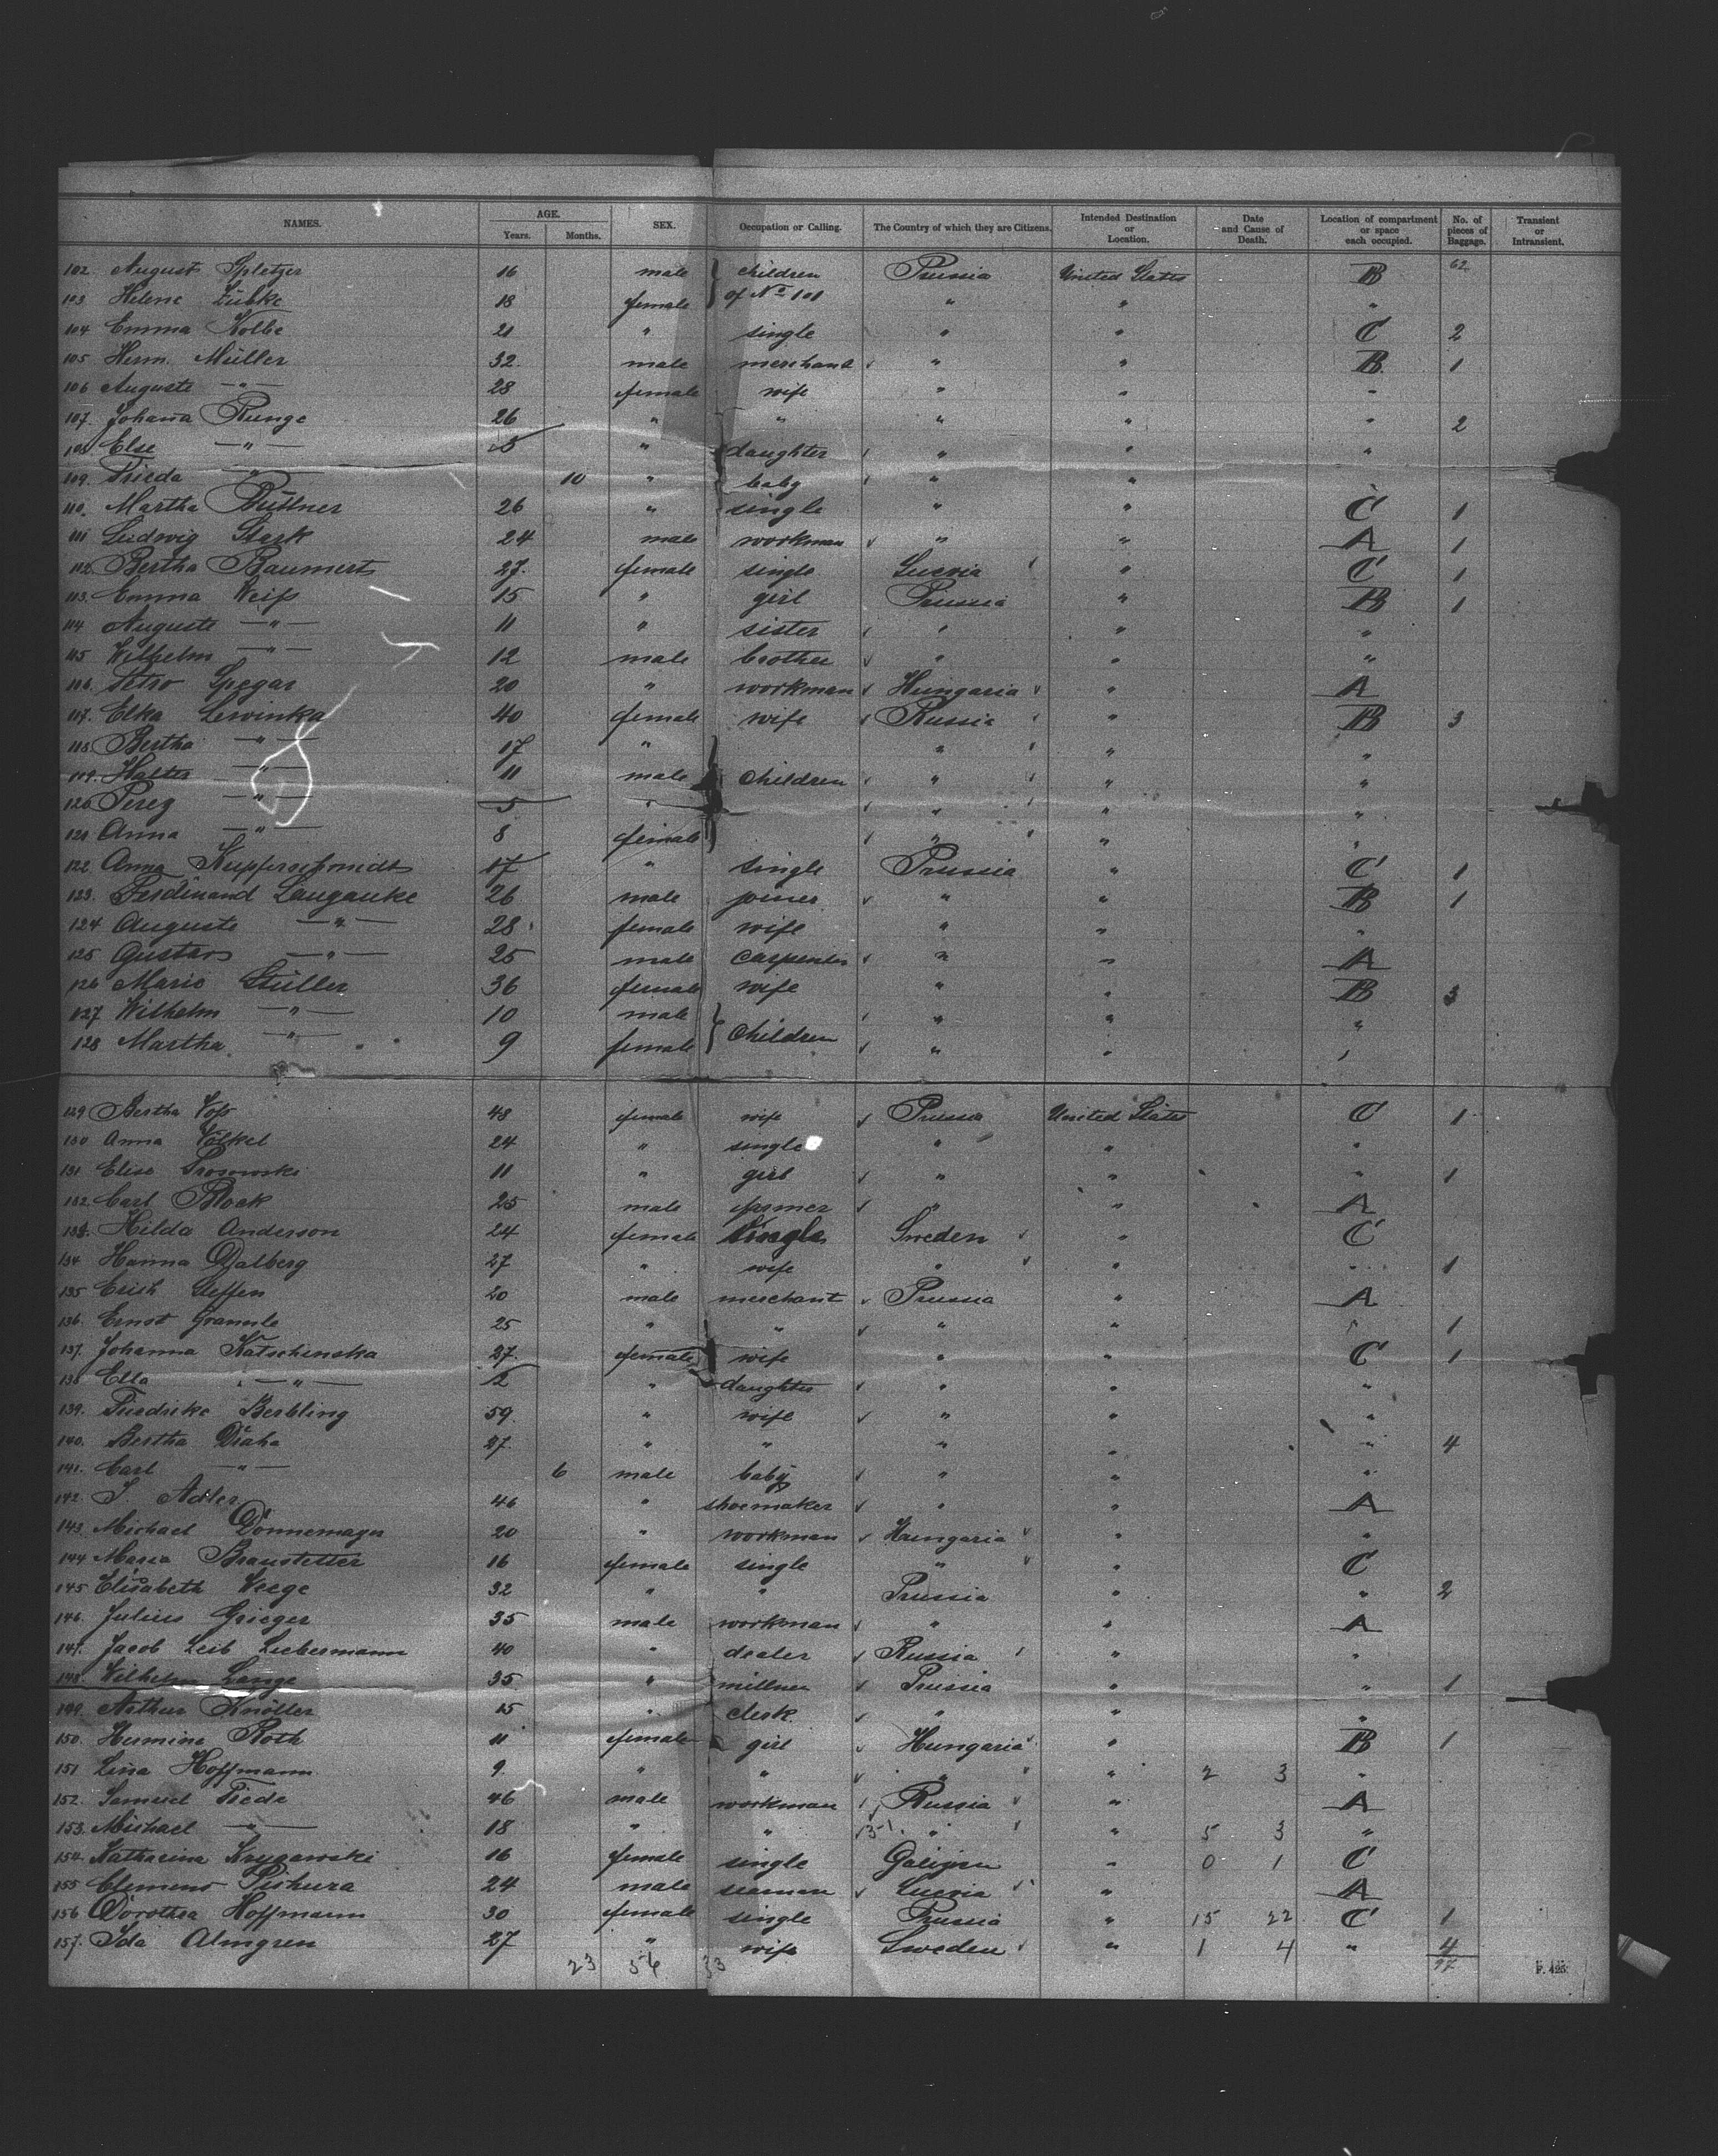 NAMES. AGE. Years. Months. SEX. Occupation or Calling. The Country of which they are Citizens. Intended Destination or Location. Date and Cause of Death. Location of compartment or space each occupied. No. of pieces of Baggage. Transient or Intransient.
62
102. August Spletzer 16 male children Prussia United States B
103 Helene Lübke 18 female of No 101 " " "
104 Emma Kolbe 21 " single " " C 2
105 Herm. Müller 32. male merchant " " B 1
106 Auguste —"— 28 female wife " " "
107. Johana Runge 26 " " " " " 2
108 Else —"— 5 " daughter " " "
109. Frieda —"— 10 " baby " "
110. Martha Büttner 26 " single " " C 1
111 Ludwig Stark 24 male workman " " A 1
112. Bertha Baumert 27. female single " C 1
113. Emma Weiß 15 " girl Prussia " B 1
114 Auguste —"— 11 " sister " " "
115 Wilhelm —"— 12 male brother " " "
116. Petro Gregar 20 " workman Hungaria " A
117. Elka Lewinka 40 female wife Russia " B 3
118. Bertha —"— 17 " " " "
119. —"— 11 male children " " "
120 —"— 5 " " " "
121 Anna —"— 8 female " " "
122 Anna Kupferschmidt 17 " single Prussia " C 1
123. Ferdinand Laugauke 26 male joiner " " B 1
124 Auguste —"— 28 female wife " " "
125 Gustav —"— 25 male carpenter " " A
126 Marie Stüller 36 female wife " " B 3
127 Wilhelm —"— 10 male children " " "
128 Martha —"— 9 female " " "
129 Bertha Voß 48 female wife Prussia United States C 1
130 Anna Völkel 24 " single " " "
131. Elise 11 " girl " " " 1
132. Carl Block 25 male farmer " " A
133. Hilda Anderson 24 female single Sweden " C
134 Hanna Dalberg 27 " wife " " " 1
135 Erich Steffen 20 male merchant Prussia " A
136. Ernst 25 " " " " " 1
137. Johanna Katschinska 27. female wife " " C 1
138 Ella —"— 2 " daughter " " "
139. Friedrike Berbling 59 " wife " " "
140. Bertha 27. " " " " " 4
141. Carl —"— 6 male baby " " "
142. J. Adler 46 " shoemaker " " A
143. Michael Dönnemayer 20 " workman Hungaria " "
144 Maria Braustetter 16 female single " " C
145 Elisabeth Weege 32 " " Prussia " " 2
146. Julius Grieger 35 male workman " " A
147. Jacob Leib Liebermann 40 " dealer Russia " "
148. Wilhelm Lange 35 " millner Prussia " " 1
149. Arthur Knöller 15 " clerk " " "
150. Hermine Roth 11 female girl Hungaria " B 1
151 Lina Hoffmann 9. " " " " 2 3 "
152. Samuel Tiede 46 male workman Russia " A
153. Michael —"— 18 " " " " 5 3 "
154. Katharina 16 female single " 0 1 C
155 Clemens 24 male seaman " A
156 Dorothea Hoffmann 30 female single Prussia " 15 22 C 1
157. Ida Almgren 27 " wife Sweden " 1 4 " 4
23 54 33 97
F. 425.